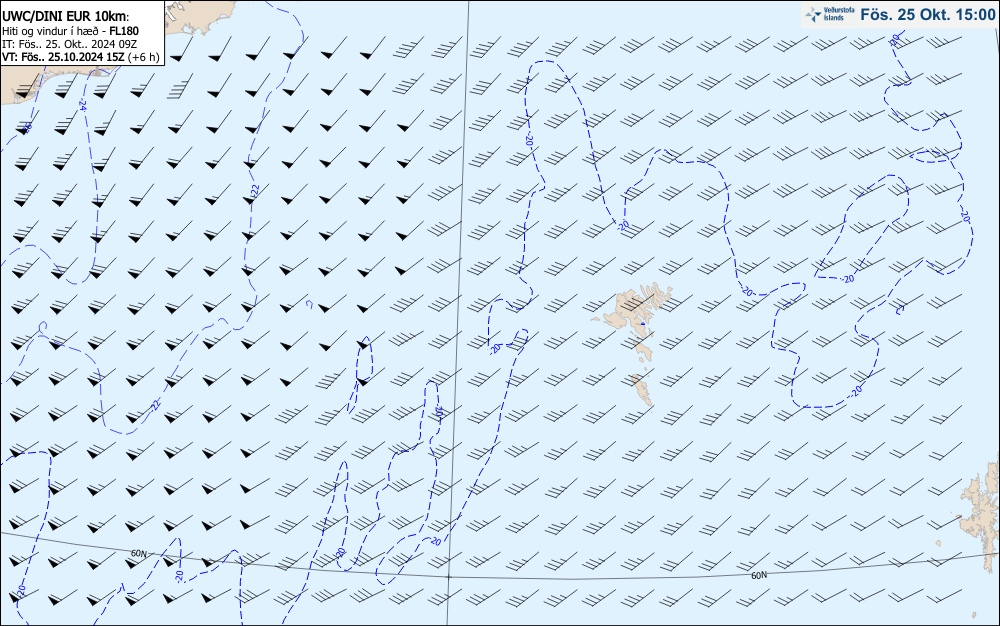 UWC/DINI EUR 10km:
Hiti og vindur í hæð - FL180
IT: Fös.. 25. Okt.. 2024 09Z
VT: Fös.. 25.10.2024 15Z (+6 h)
Veðurstofa
Íslands
Fös. 25 Okt. 15:00
-20
-24
-20
-22
-20
-20
-20
-20
-20
-22
-20
-20
-20
60N
-20
-20
60N
-20